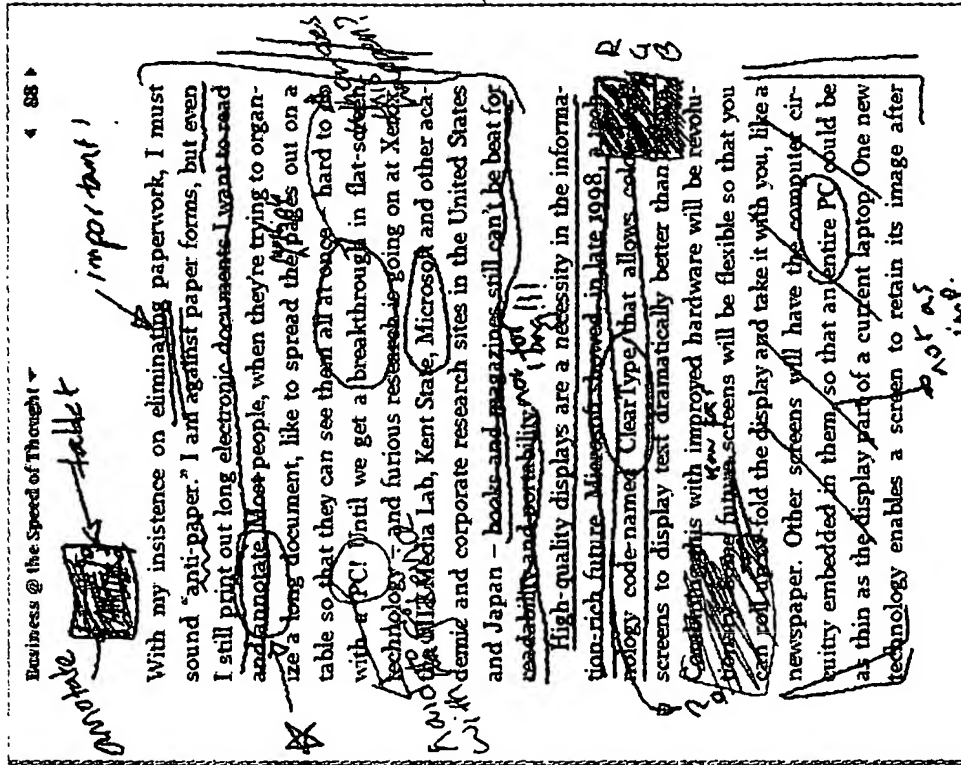 Business @ the Speed of Thought ▾ ◂ 88 ▸
annotate
tablet
important!
With my insistence on eliminating paperwork, I must
sound “anti-paper.” I am against paper forms, but even
I still print out long electronic documents I want to read
and annotate. Most people, when they're trying to organ-
ize a long document, like to spread the pages out on a
table so that they can see them all at once – hard to do
with a PC! Until we get a breakthrough in flat-screen
technology – and furious research is going on at Xerox,
the MIT Media Lab, Kent State, Microsoft and other aca-
demic and corporate research sites in the United States
and Japan – books and magazines still can't be beat for
readability and portability.
not for
long!!!
High-quality displays are a necessity in the informa-
tion-rich future. Microsoft showed in late 1998, a tech-
nology code-named ClearType that allows
screens to display text dramatically better than
R
G
B
this with improved hardware will be revolu-
screens will be flexible so that you
can roll up or fold the display and take it with you, like a
newspaper. Other screens will have the computer cir-
cuitry embedded in them, so that an entire PC could be
as thin as the display part of a current laptop. One new
technology enables a screen to retain its image after
not as
imp.